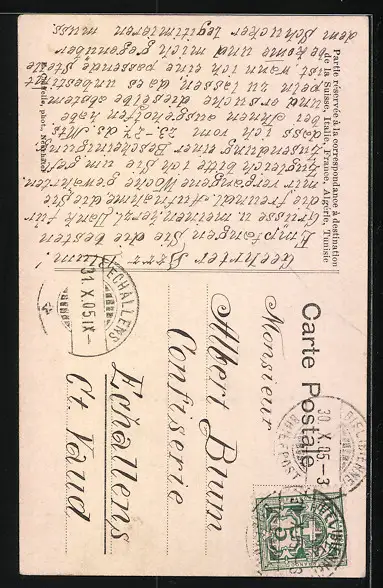 Carte Postale
Partie réservée à la correspondance à destination
de la Suisse, Italie, France, Algérie, Tunisie
Monsieur
Albert Blum
Confiserie
Echallens
Ct. Vaud
Geehrter Herr Blum!
Empfangen Sie die besten
Grüsse u. meinen herzl. Dank für
die freundl. Aufnahme, die Sie
mir vergangene Woche gewährten.
Zugleich bitte ich Sie um gefl.
Zusendung einer Bescheinigung,
dass ich vom 23-28. d. Mts.
bei Ihnen ausgeholfen habe
und ersuche dieselbe abstem-
peln zu lassen, da es unbestimmt
ist wann ich eine passende Stelle
bekomme und mich gegenüber
dem legitimieren muss.
ECHALLENS
31.X.05.IX-
BIEL (BIENNE)
30.X.05.-3
BRIEFPOST
5